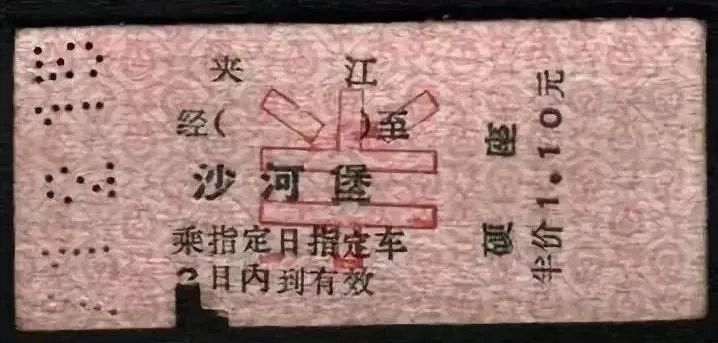 夹 江
经( )至
沙河堡
乘指定日指定车
2日内到有效
硬座
半价1.10元
半